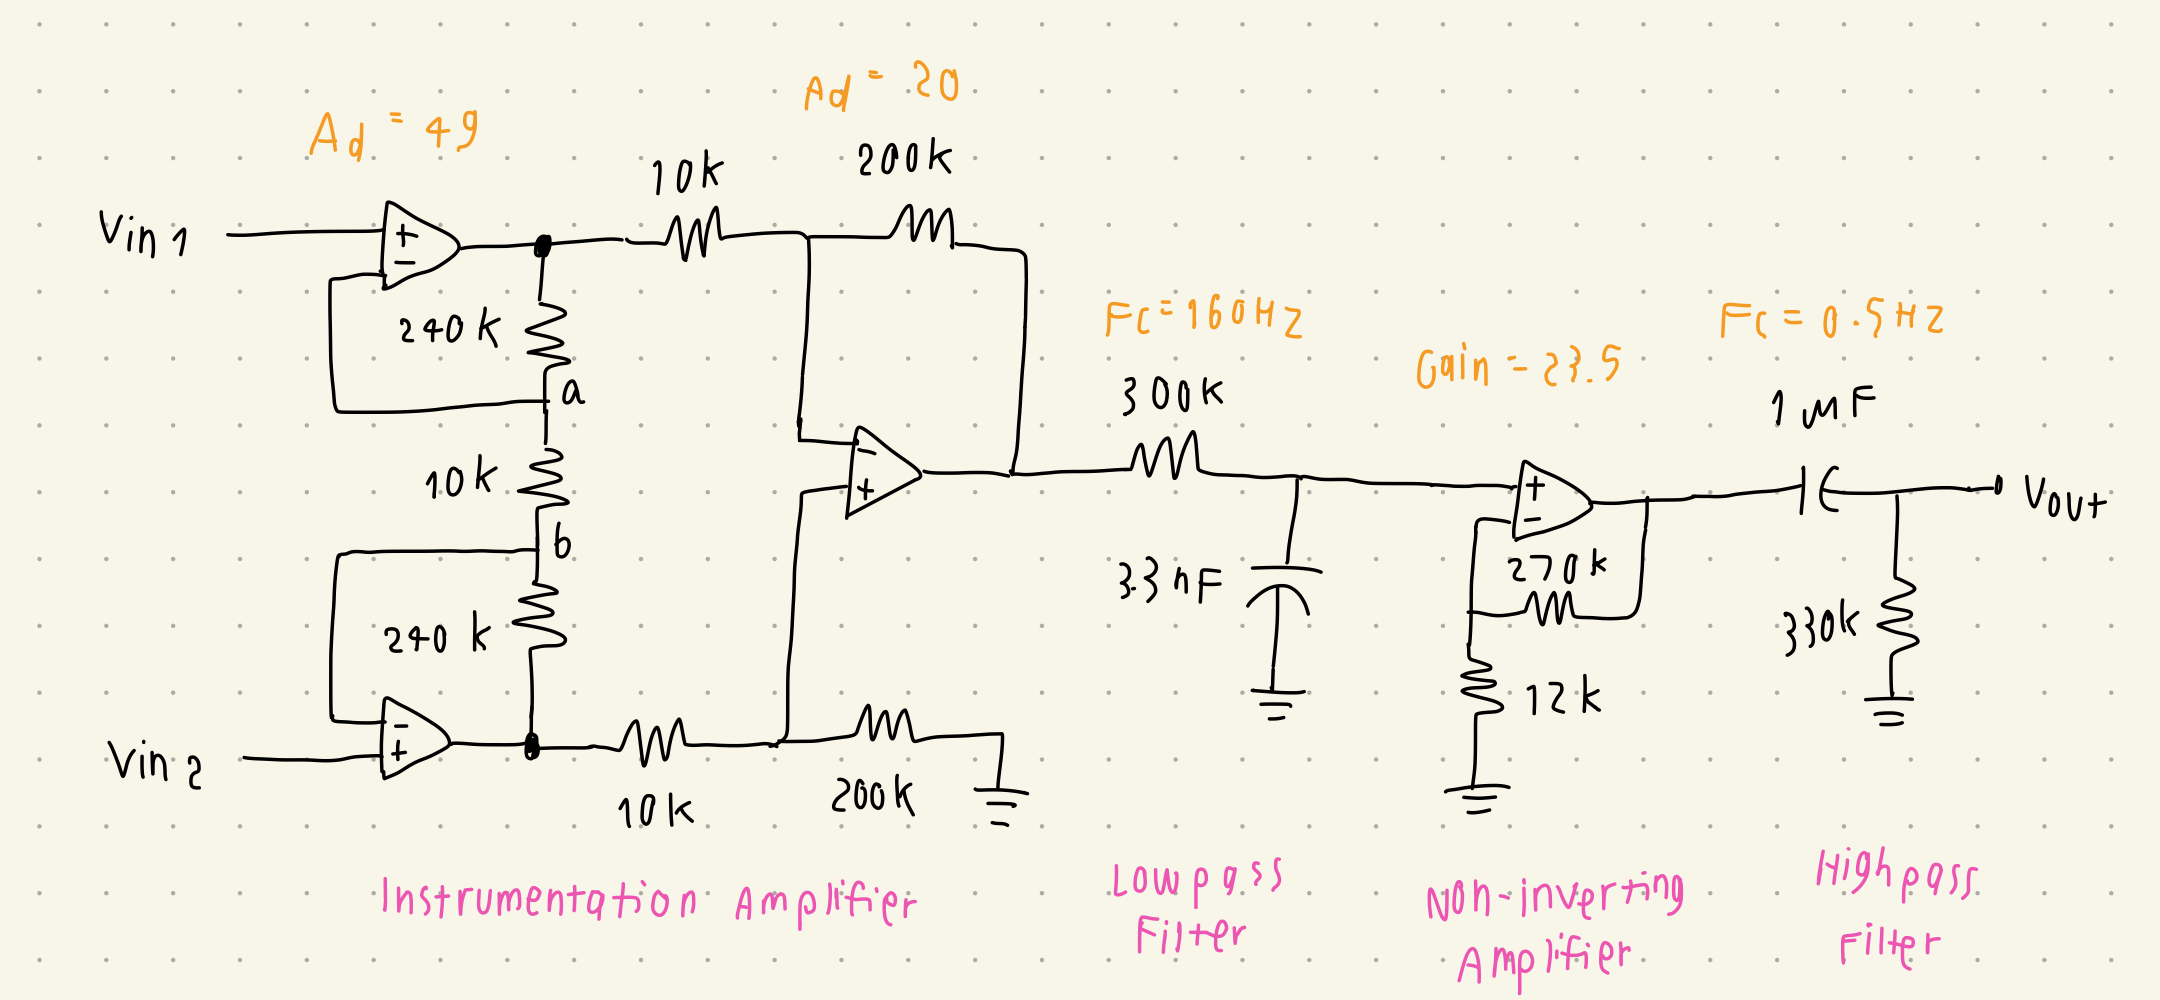 Ad = 49
Ad = 20
Vin 1
10k
200k
+
-
240k
a
10k
b
240k
-
+
Vin 2
10k
200k
-
+
Fc = 160Hz
300k
3.3nF
Gain = 23.5
+
-
270k
12k
Fc = 0.5Hz
1µF
330k
Vout
Instrumentation Amplifier
Low pass
Filter
Non-inverting
Amplifier
High pass
Filter